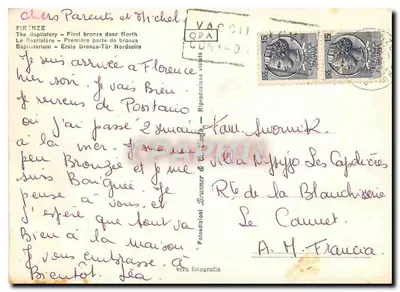 Chers Parents et Michel
FIRENZE
The Baptistery - First bronze door North
Le Baptistère - Première porte de bronze
Baptisterium - Erste Bronze-Tür Nordseite
Je suis arrivée a Florence
hier soir. Je vais Bien.
Je reviens de Positano
où j'ai passé 2 semaines
à la mer. Je me suis
peu Bronzée et je me
suis Baignée. Je
pense à vous et
j'espère que tout va
Bien à la maison
Je vous embrasse. à
Bientôt. Léa
vera fotografia
Riproduzione vietata
VACCI
OPA
CONTRO
Villa Les
Rte de la Blanchisserie
Le Cannet
A. M. Francia